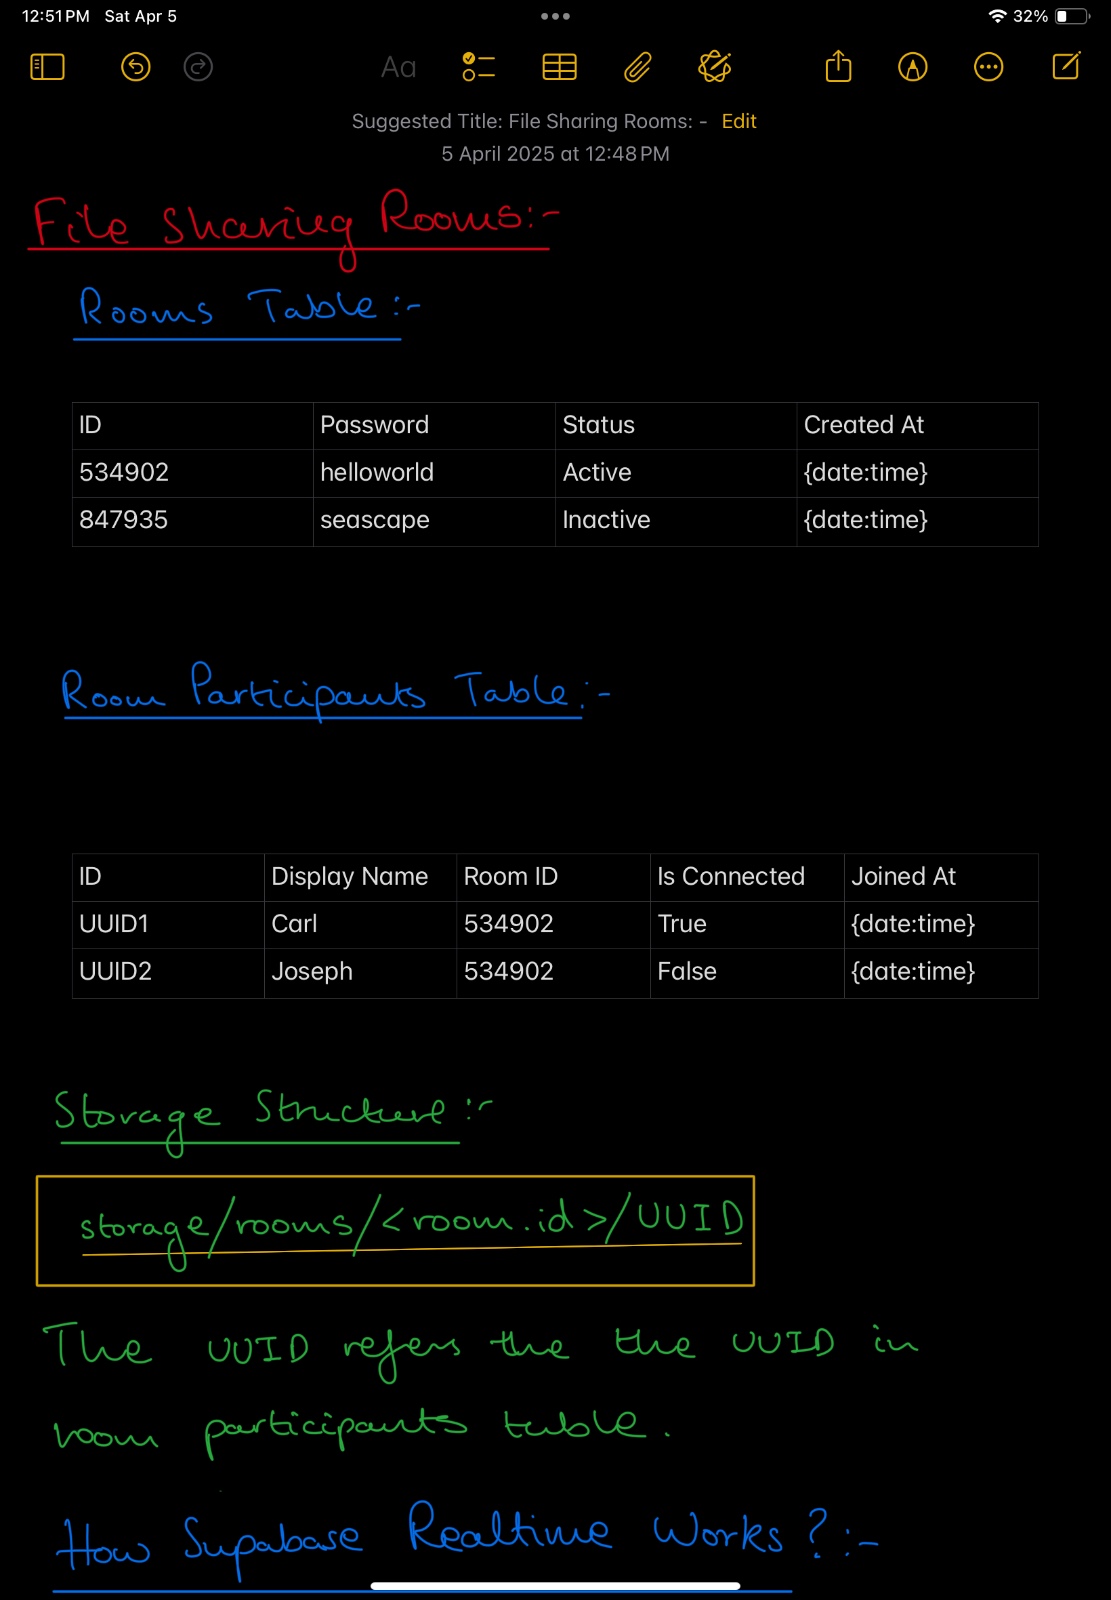 12:51 PM Sat Apr 5
32%
Aa
Suggested Title: File Sharing Rooms: - Edit
5 April 2025 at 12:48 PM
File Sharing Rooms:-
Rooms Table:-
ID Password Status Created At
534902 helloworld Active {date:time}
847935 seascape Inactive {date:time}
Room Participants Table:-
ID Display Name Room ID Is Connected Joined At
UUID1 Carl 534902 True {date:time}
UUID2 Joseph 534902 False {date:time}
Storage Structure:-
storage/rooms/<room.id>/UUID
The UUID refers the the UUID in
room participants table.
How Supabase Realtime Works?:-